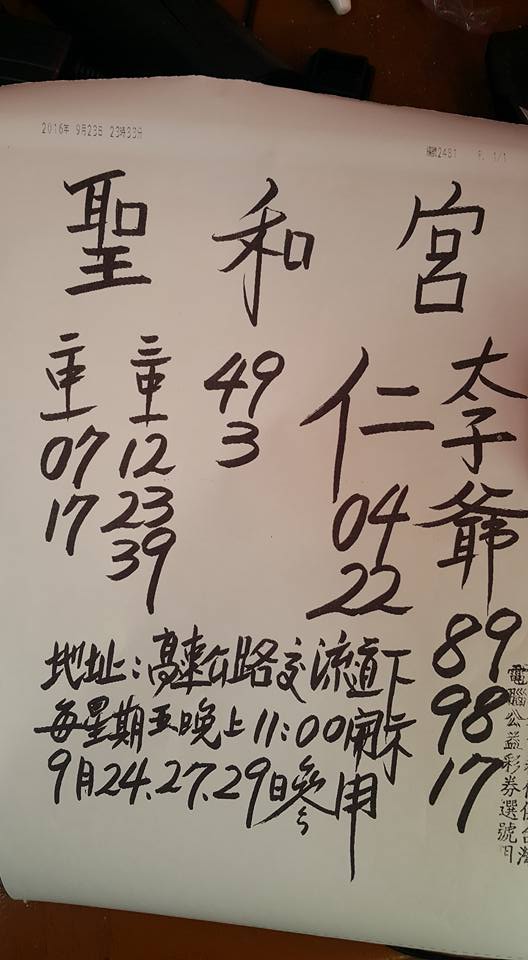 2016年 9月23日 23時33分
2481 P. 1/1
聖和宮
太子爺
89
98
17
仁
04
22
49
3
三重
12
23
39
二重
07
17
地址:高速公路交流道下
每星期五晚上11:00開示
9月24.27.29日參用
電腦公益彩券選號用